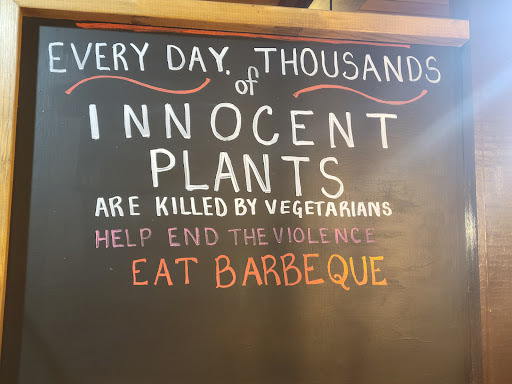 EVERY DAY. THOUSANDS
of
INNOCENT
PLANTS
ARE KILLED BY VEGETARIANS
HELP END THE VIOLENCE
EAT BARBEQUE